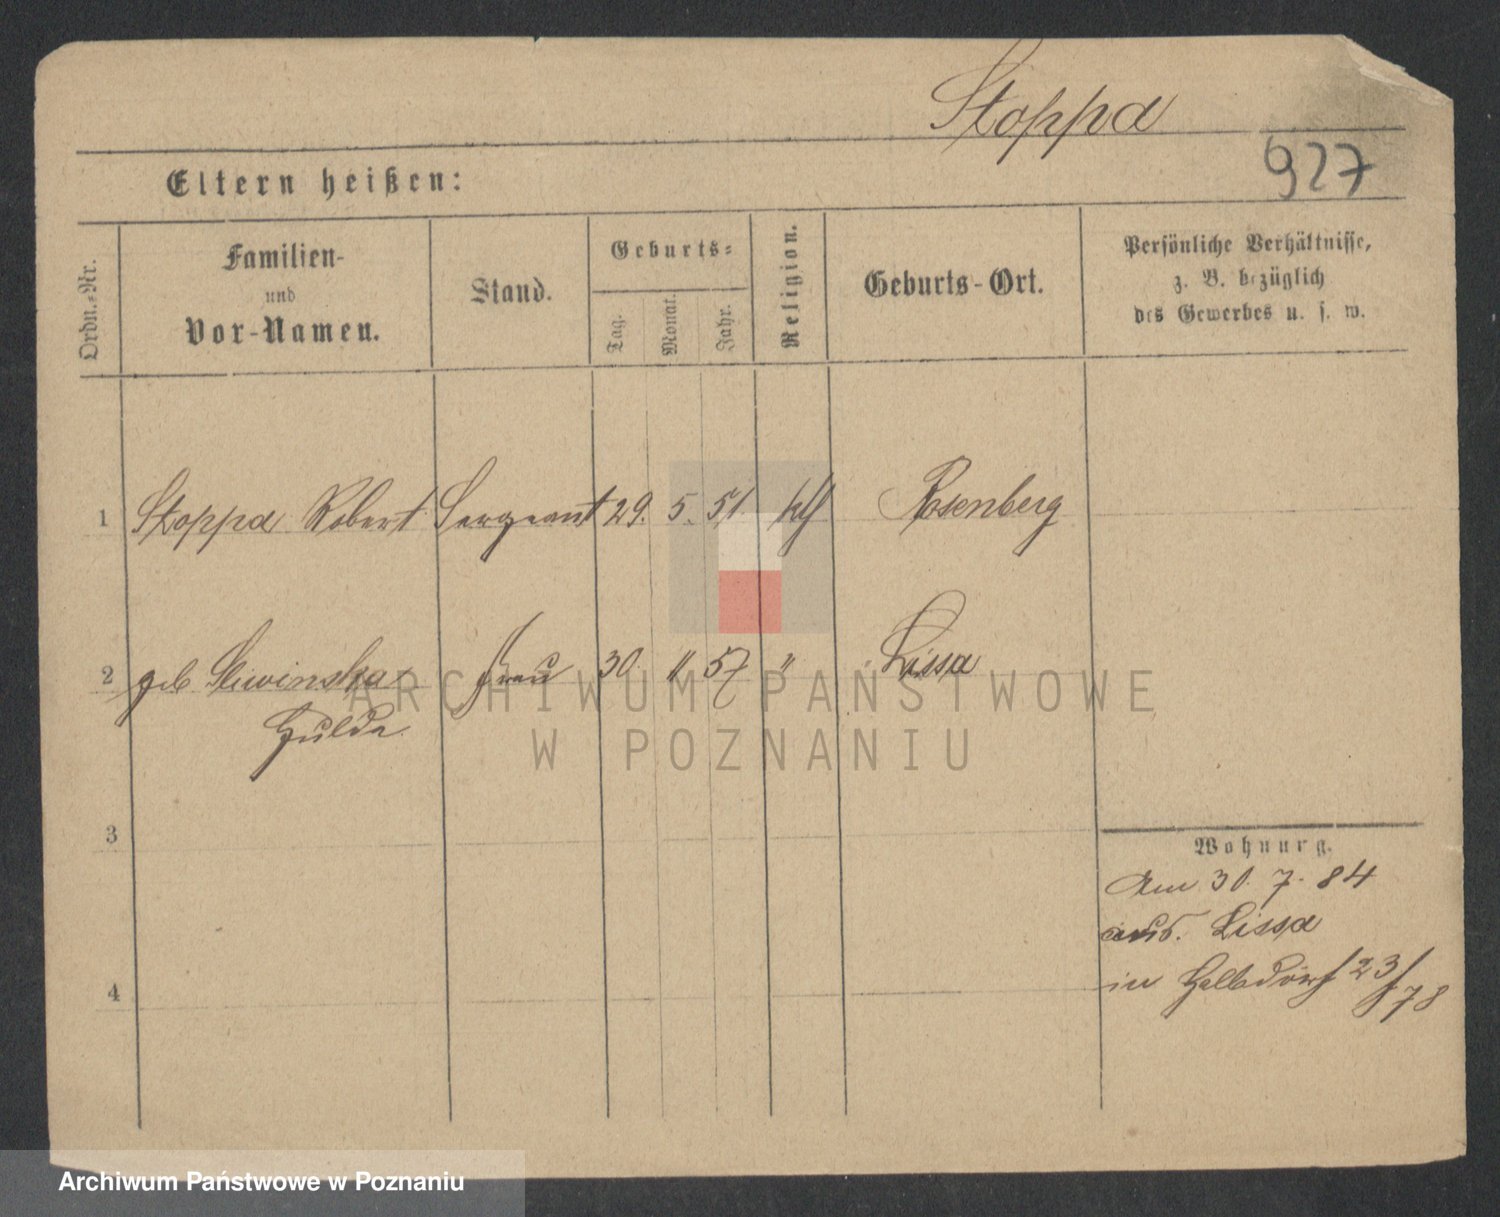 Stoppa
927
Eltern heißen:
Ordn.-Nr.
Familien-
und
Vor-Namen.
Stand.
Geburts-
Tag.
Monat.
Jahr.
Religion.
Geburts-Ort.
Persönliche Verhältnisse,
z. B. bezüglich
des Gewerbes u. s. w.
1 Stoppa Robert Sergeant 29. 5. 51. kth Rosenberg
2 geb Frau 30. " 57 " Lissa
Hulda
3
4
Wohnung.
Am 30. 7. 84
aus. Lissa
in Halbdorf 23/78
ARCHIWUM PAŃSTWOWE
W POZNANIU
Archiwum Państwowe w Poznaniu